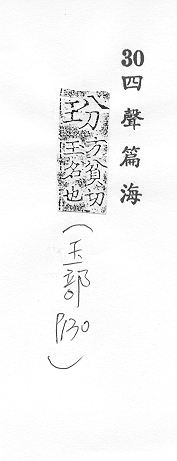 30
四聲篇海
玢 方貧切
玉名也
(玉部
P130)